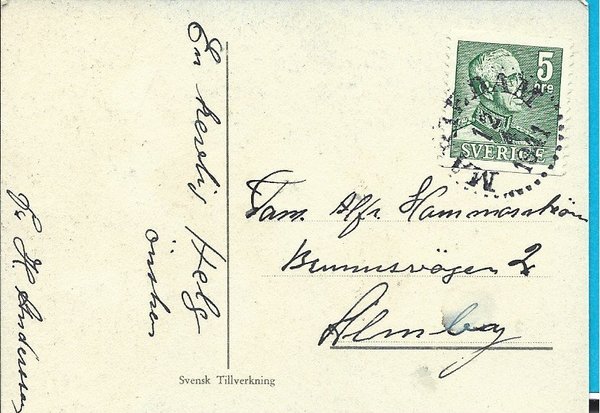 En kevlig Helg
önskar
Fr. H. Andersson
5
öre
SVERIGE
1941
Fam. Alfr Hammarström
Brunnsvägen 2
Almby
Svensk Tillverkning